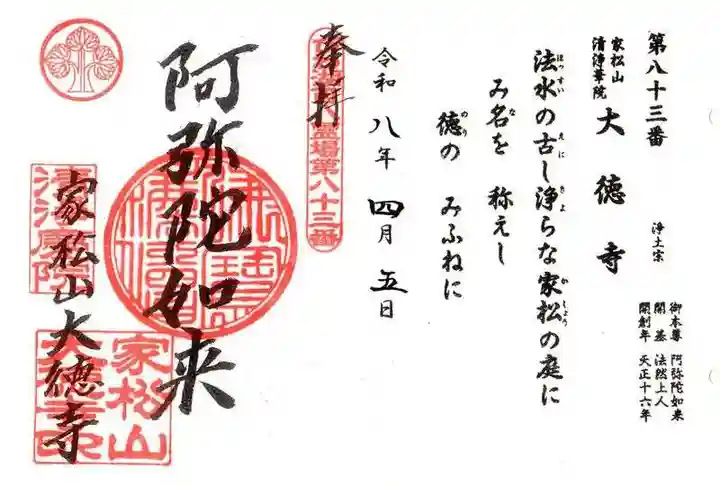 第八十三番
家松山
清浄華院
大徳寺
浄土宗
御本尊 阿弥陀如来
開基 法然上人
開創年 天正十六年
法水の古し浄らな家松の庭に
ほっすい えに きよ かしょう
み名を 称えし
な
徳の みふねに
のり
令和八年 四月 五日
奉拝
霊場第八十三番
阿弥陀如来
家松山大徳寺
家松山